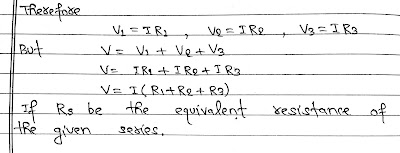 Therefore
V₁ = IR₁ , V₂ = IR₂ , V₃ = IR₃
But V = V₁ + V₂ + V₃
V = IR₁ + IR₂ + IR₃
V = I (R₁+R₂ + R₃)
If Rs be the equivalent resistance of
the given series.